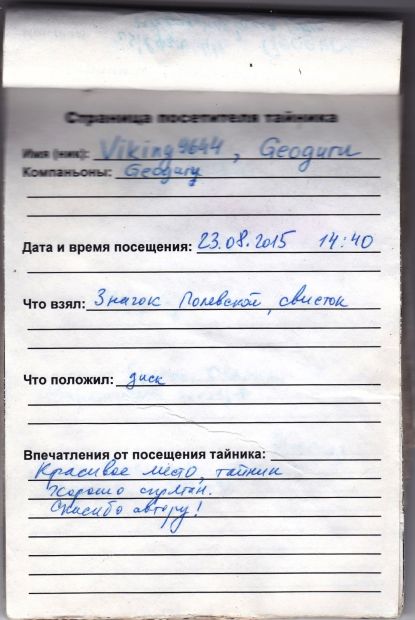 Страница посетителя тайника
Имя (ник): Viking9644, Geoguru
Компаньоны: Geogury
Дата и время посещения: 23.08.2015 14:40
Что взял: Значок Полевской, свисток
Что положил: диск
Впечатления от посещения тайника:
Красивое место, тайник
Хорошо спрятан.
Спасибо автору!